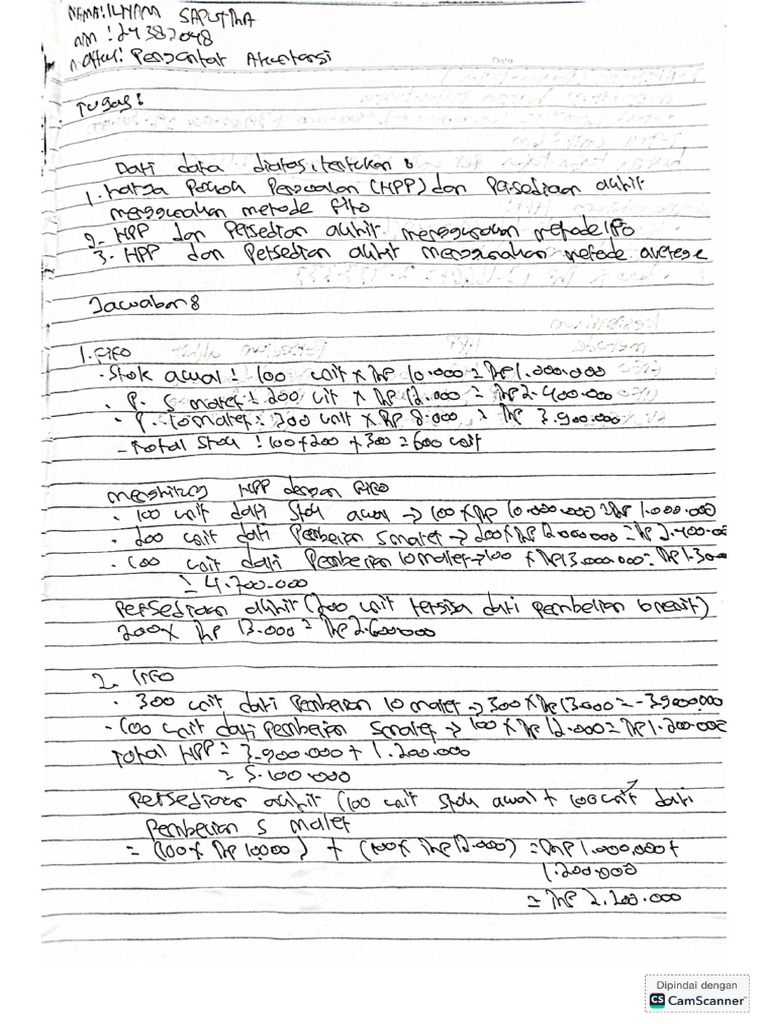 NAMA: ILHAM SAPUTRA
NIM : 24382048
Matkul: Pengantar Akuntansi
Date
Tugas :
Dari data diatas, tentukan :
1. Harga Pokok Penjualan (HPP) dan Persediaan akhir
menggunakan metode fifo
2. HPP dan Persedian akhir menggunakan metode lifo
3. HPP dan Persedian akhir menggunakan metode averege
Jawaban :
1. FIFO
- Stok awal : 100 unit x Rp 10.000 = Rp 1.000.000
. P. 5 maret = 200 uit x Rp 12.000 = Rp 2.400.000
- P. 10 maret = 300 unit x Rp 8.000 = Rp 3.900.000
- Total Stok : 100 + 200 + 300 = 600 unit
menghitung HPP dengan FIFO
. 100 unit dari Stok awal → 100 x Rp 10.000.000 = Rp 1.000.000
. 200 unit dari Pembelian 5 maret → 200 x Rp 12.000.000 = Rp 2.400.00
. 100 unit dari Pembelian 10 maret → 100 x Rp 13.000.000 = Rp 1.300
= 4.700.000
Persediaan akhir (200 unit tersisa dari pembelian
200 x Rp 13.000 = Rp 2.600.000
2. LIFO
. 300 unit dari Pembelian 10 maret → 300 x Rp 13.000 = 3.900.000
- 100 unit dari Pembelian 5 maret → 100 x Rp 12.000 = Rp 1.200.000
Total HPP = 3.900.000 + 1.200.000
= 5.100.000
Persediaan akhir (100 unit stok awal + 100 unit dari
Pembelian 5 maret
= (100 x Rp 10.000) + (100 x Rp 12.000) = Rp 1.000.000 +
1.200.000
= Rp 2.200.000
Dipindai dengan
CS CamScanner